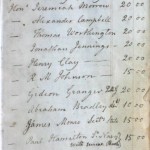 Hon. Jeremiah Morrow 20 00
— Alexander Campbell 20 00
— Thomas Worthington 20 00
— Jonathan Jennings 20 00
— Henry Clay 20 00
— R. M. Johnson 15 00
Gideon Granger 20 00
Abraham Bradley 10 00
James Monroe 15 00
Paul Hamilton